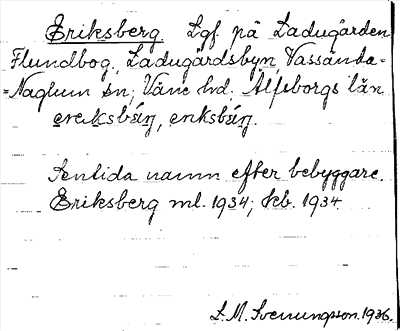 Eriksberg Lgf. på Ladugården
Flundbog, Ladugårdsbyn, Vassända-
=Naglum sn; Väne hd. Älfsborgs län
Sentida namn efter bebyggare.
Eriksberg ml. 1934; Jeb. 1934.
L. M. Svenungsson. 1936.